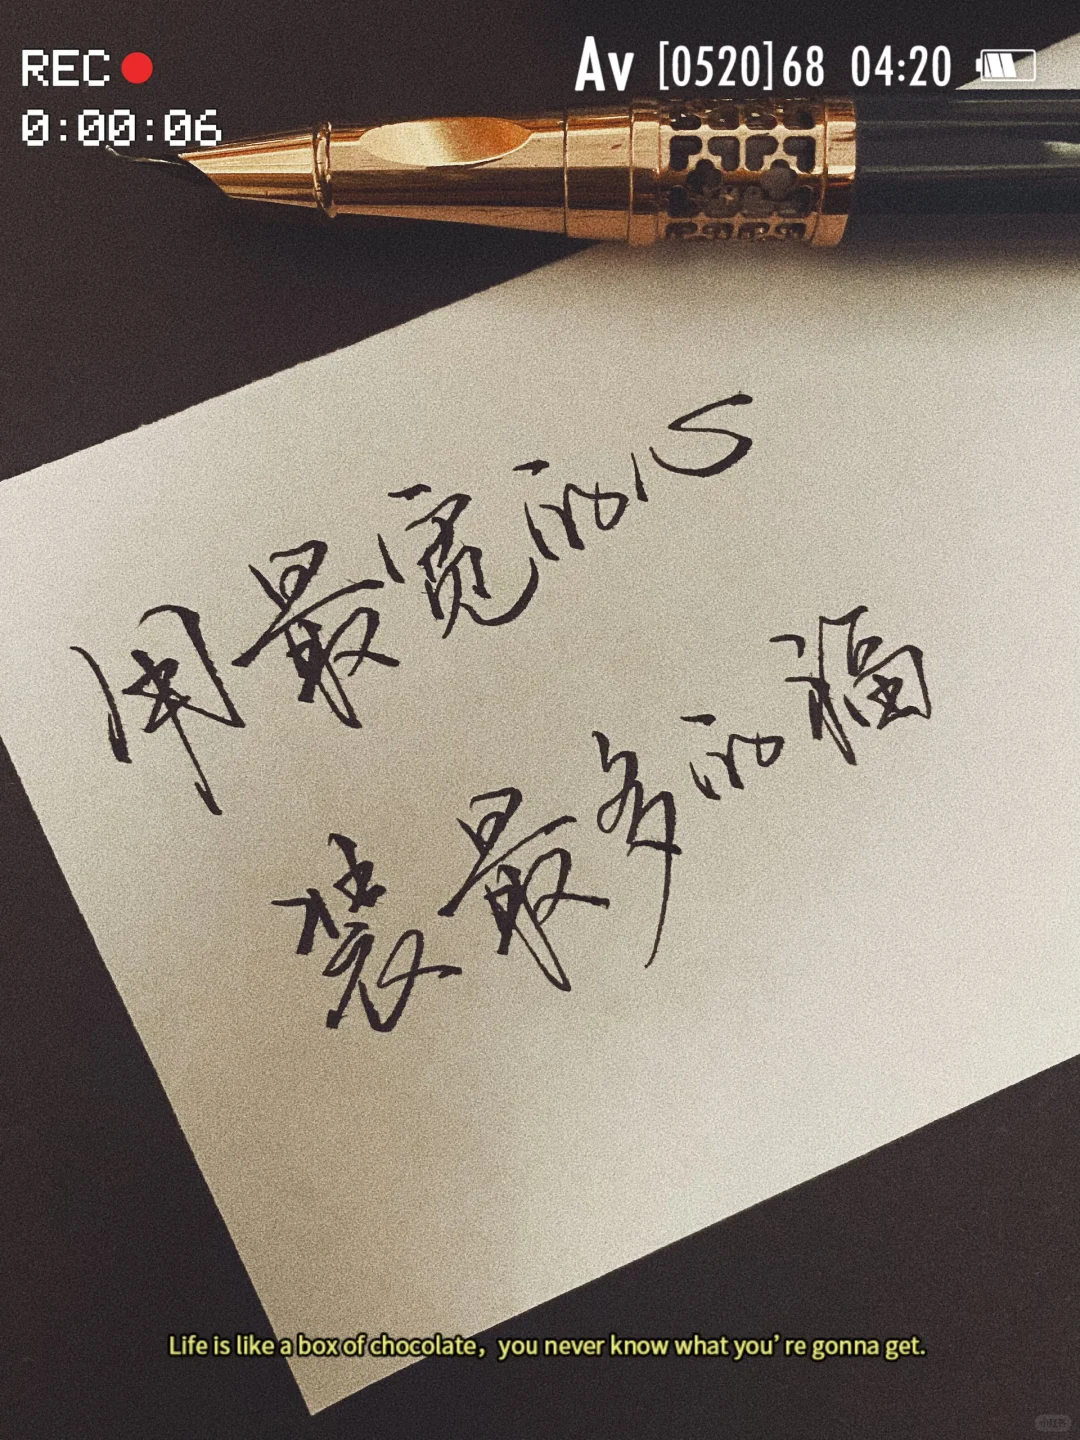 REC
Av [0520]68 04:20
0:00:06
用最宽的心
装最多的福
Life is like a box of chocolate, you never know what you're gonna get.
小红书